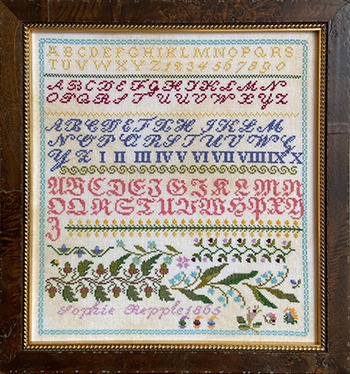 ABCDEFGHIKLMNOPQRS
TUVVWXYZ1234567890
ABCDEFGHIKLMN
OPQRSTUVVXYZ
ABCDEFXHIKLM
NOPQRSTUVWG
YZIIIIIIIVVVIVIIVIIIIXX
ABCDEIGIKLMN
OQRSTUVWHPXY
Z
Sophie Repple 1865